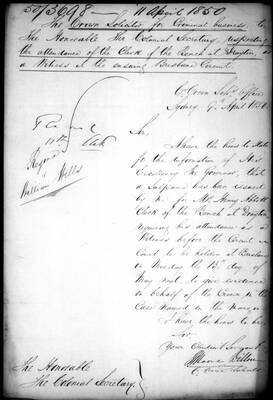 50/3698 - 11 April 1850
The Crown Solicitor for Criminal business, to
The Honorable The Colonial Secretary, respecting
the attendance of the Clerk of the Bench at Drayton, as
a Witness at the ensuing Brisbane Circuit.
Crown Sol.rs Office
Sydney 9th April 1850
Sir,
I have the honor to state
for the information of His
Excellency the Governor, that
a Subpoena has been issued
by me for Mr. Henry Abbott
Clerk of the Bench at Drayton
requiring his attendance as a
Witness before the Circuit
Court to be holden at Brisbane
on Monday the 13th day of
May next to give evidence
on behalf of the Crown in the
Case named in the margin
I have the honor to be
Sir
Your Obedient Servant
Regina
v
William Wells
11th
The Honorable
The Colonial Secretary